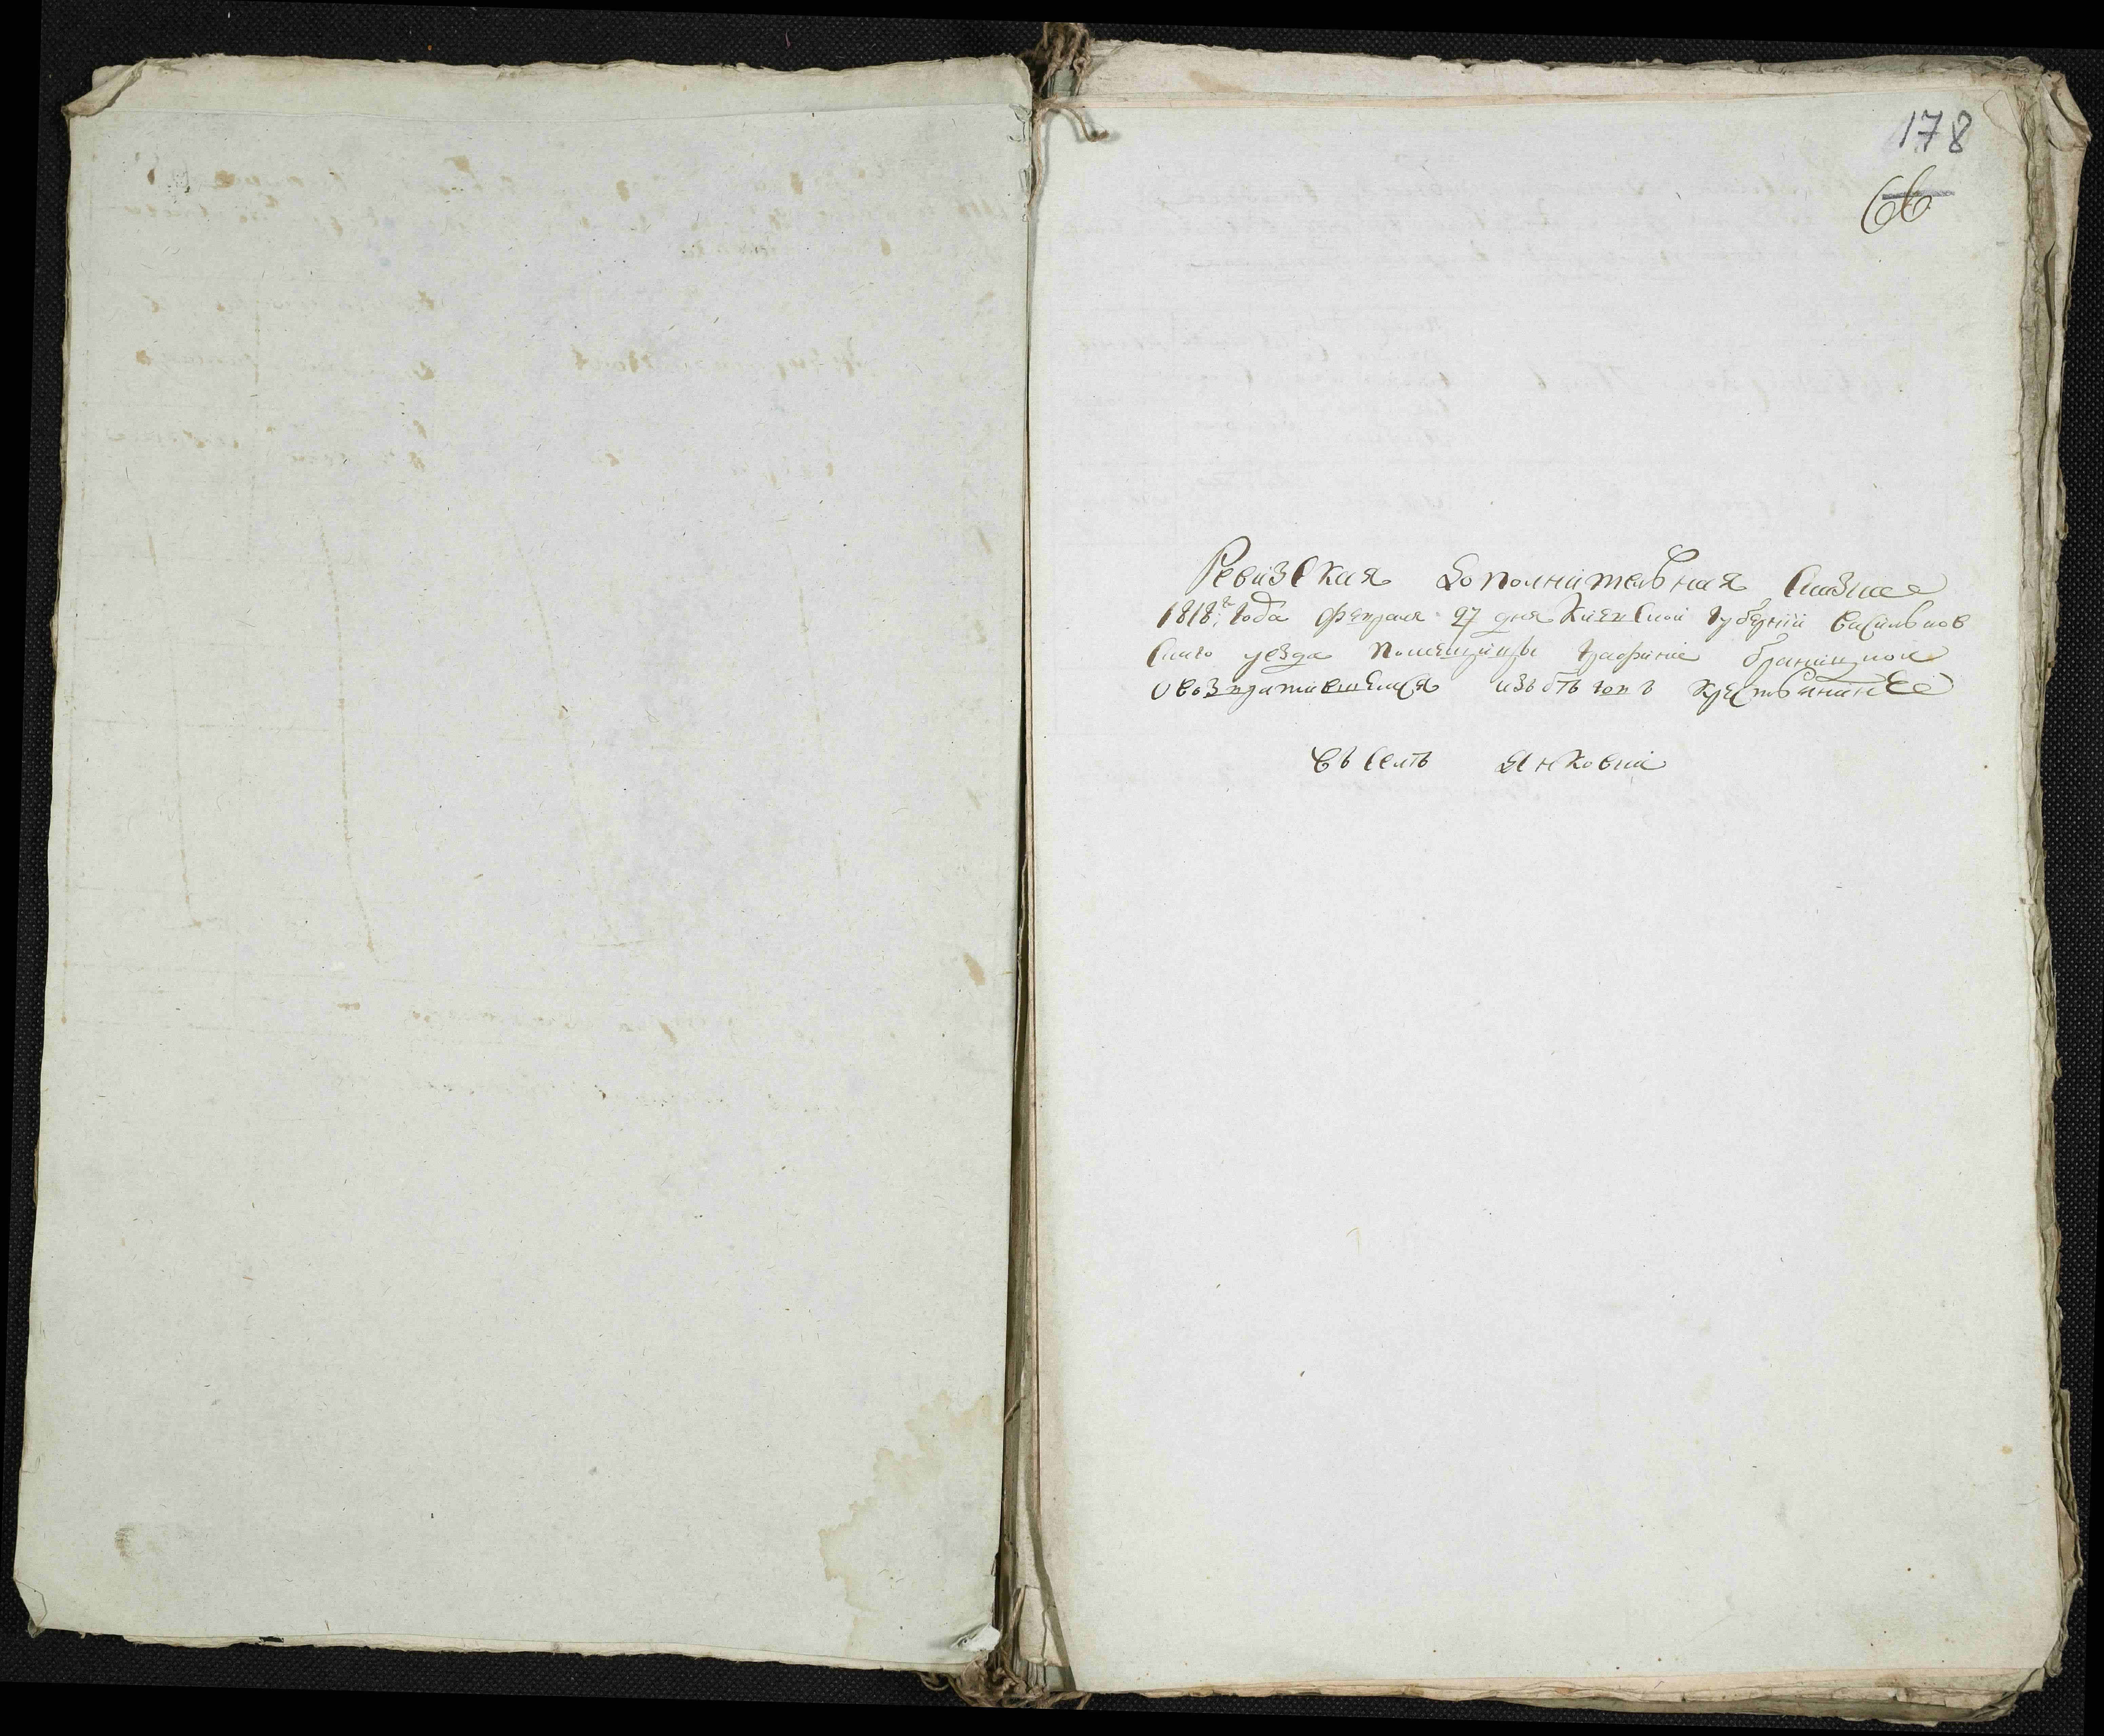 178
66
Ревизская дополнительная Сказка
1818го года февраля 27 дня Киевской губернии васильков
ского уезда помещицы графине браницкой
о возвратившемся изъ бѣгов крестьянине
въ селѣ Янковки